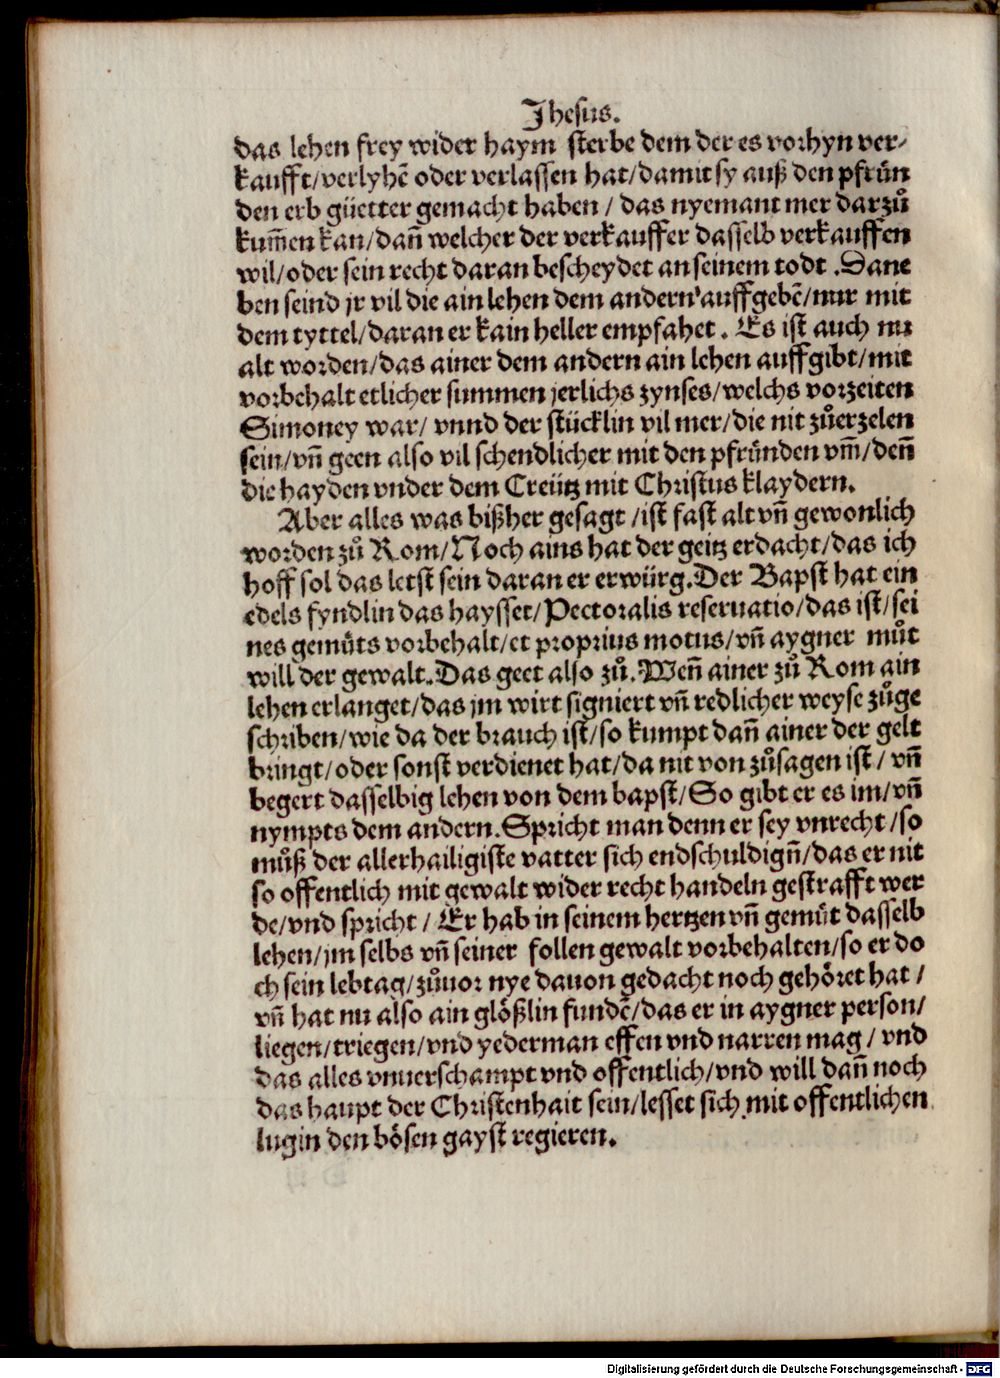 Jhesus.
das lehen frey wider haym sterbe dem der es vorhyn ver-
kaufft/verlyhē oder verlassen hat/damit sy auß den pfrün
den erb güetter gemacht haben / das nyemant mer darzů
kum̄en kan/dañ welcher der verkauffer dasselb verkauffen
wil/oder sein recht daran bescheydet an seinem todt .Dane
ben seind jr vil die ain lehen dem andern auffgebē/nur mit
dem tyttel/daran er kain heller empfahet . Es ist auch nu
alt worden/das ainer dem andern ain lehen auffgibt/mit
vorbehalt etlicher summen jerlichs zynses/welchs vorzeiten
Simoney war/ vnnd der stücklin vil mer/die nit zůerzelen
sein/vñ geen also vil schendlicher mit den pfründen vm̄/deñ
die hayden vnder dem Creütz mit Christus klaydern.
Aber alles was bißher gesagt /ist fast alt vñ gewonlich
worden zů Rom/Noch ains hat der geitz erdacht/das ich
hoff sol das letst sein daran er erwürg.Der Bapst hat ein
edels fyndlin das haysset/Pectoralis reseruatio/das ist/sei
nes gemüts vorbehalt/et proprius motus/vñ aygner můt
will der gewalt.Das geet also zů.Weñ ainer zů Rom ain
lehen erlanget/das jm wirt signiert vñ redlicher weyse zůge
schriben/wie da der brauch ist/so kumpt dañ ainer der gelt
bringt/oder sonst verdienet hat/da nit von zůsagen ist/ vñ
begert dasselbig lehen von dem bapst/So gibt er es im/vñ
nympts dem andern.Spricht man denn er sey vnrecht/so
můß der allerhailigiste vatter sich endschuldigñ/das er nit
so offentlich mit gewalt wider recht handeln gestrafft wer
de/vnd spricht / Er hab in seinem hertzen vñ gemüt dasselb
lehen/jm selbs vñ seiner follen gewalt vorbehalten/so er do
ch sein lebtag/zůuor nye dauon gedacht noch gehöret hat /
vñ hat nu also ain glößlin fundē/das er in aygner person/
liegen/triegen/vnd yederman effen vnd narren mag / vnd
das alles vnuerschampt vnd offentlich/vnd will dañ noch
das haupt der Christenhait sein/lesset sich mit offentlichen
lugin den bösen gayst regieren.
Digitalisierung gefördert durch die Deutsche Forschungsgemeinschaft - DFG